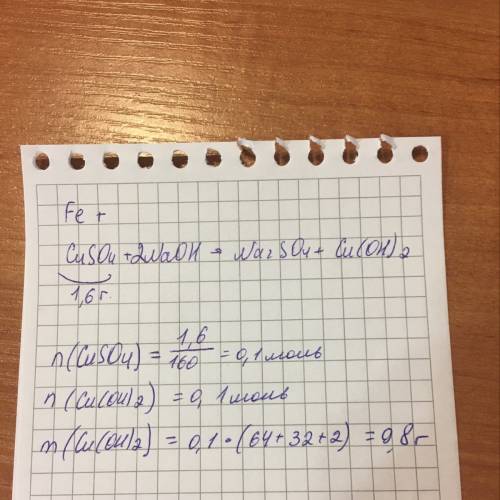 Fe +
CuSO4 + 2NaOH → Na2SO4 + Cu(OH)2
1,6 г.
n(CuSO4) = 1,6/160 = 0,1 моль
n(Cu(OH)2) = 0,1 моль
m(Cu(OH)2) = 0,1 · (64+32+2) = 9,8 г